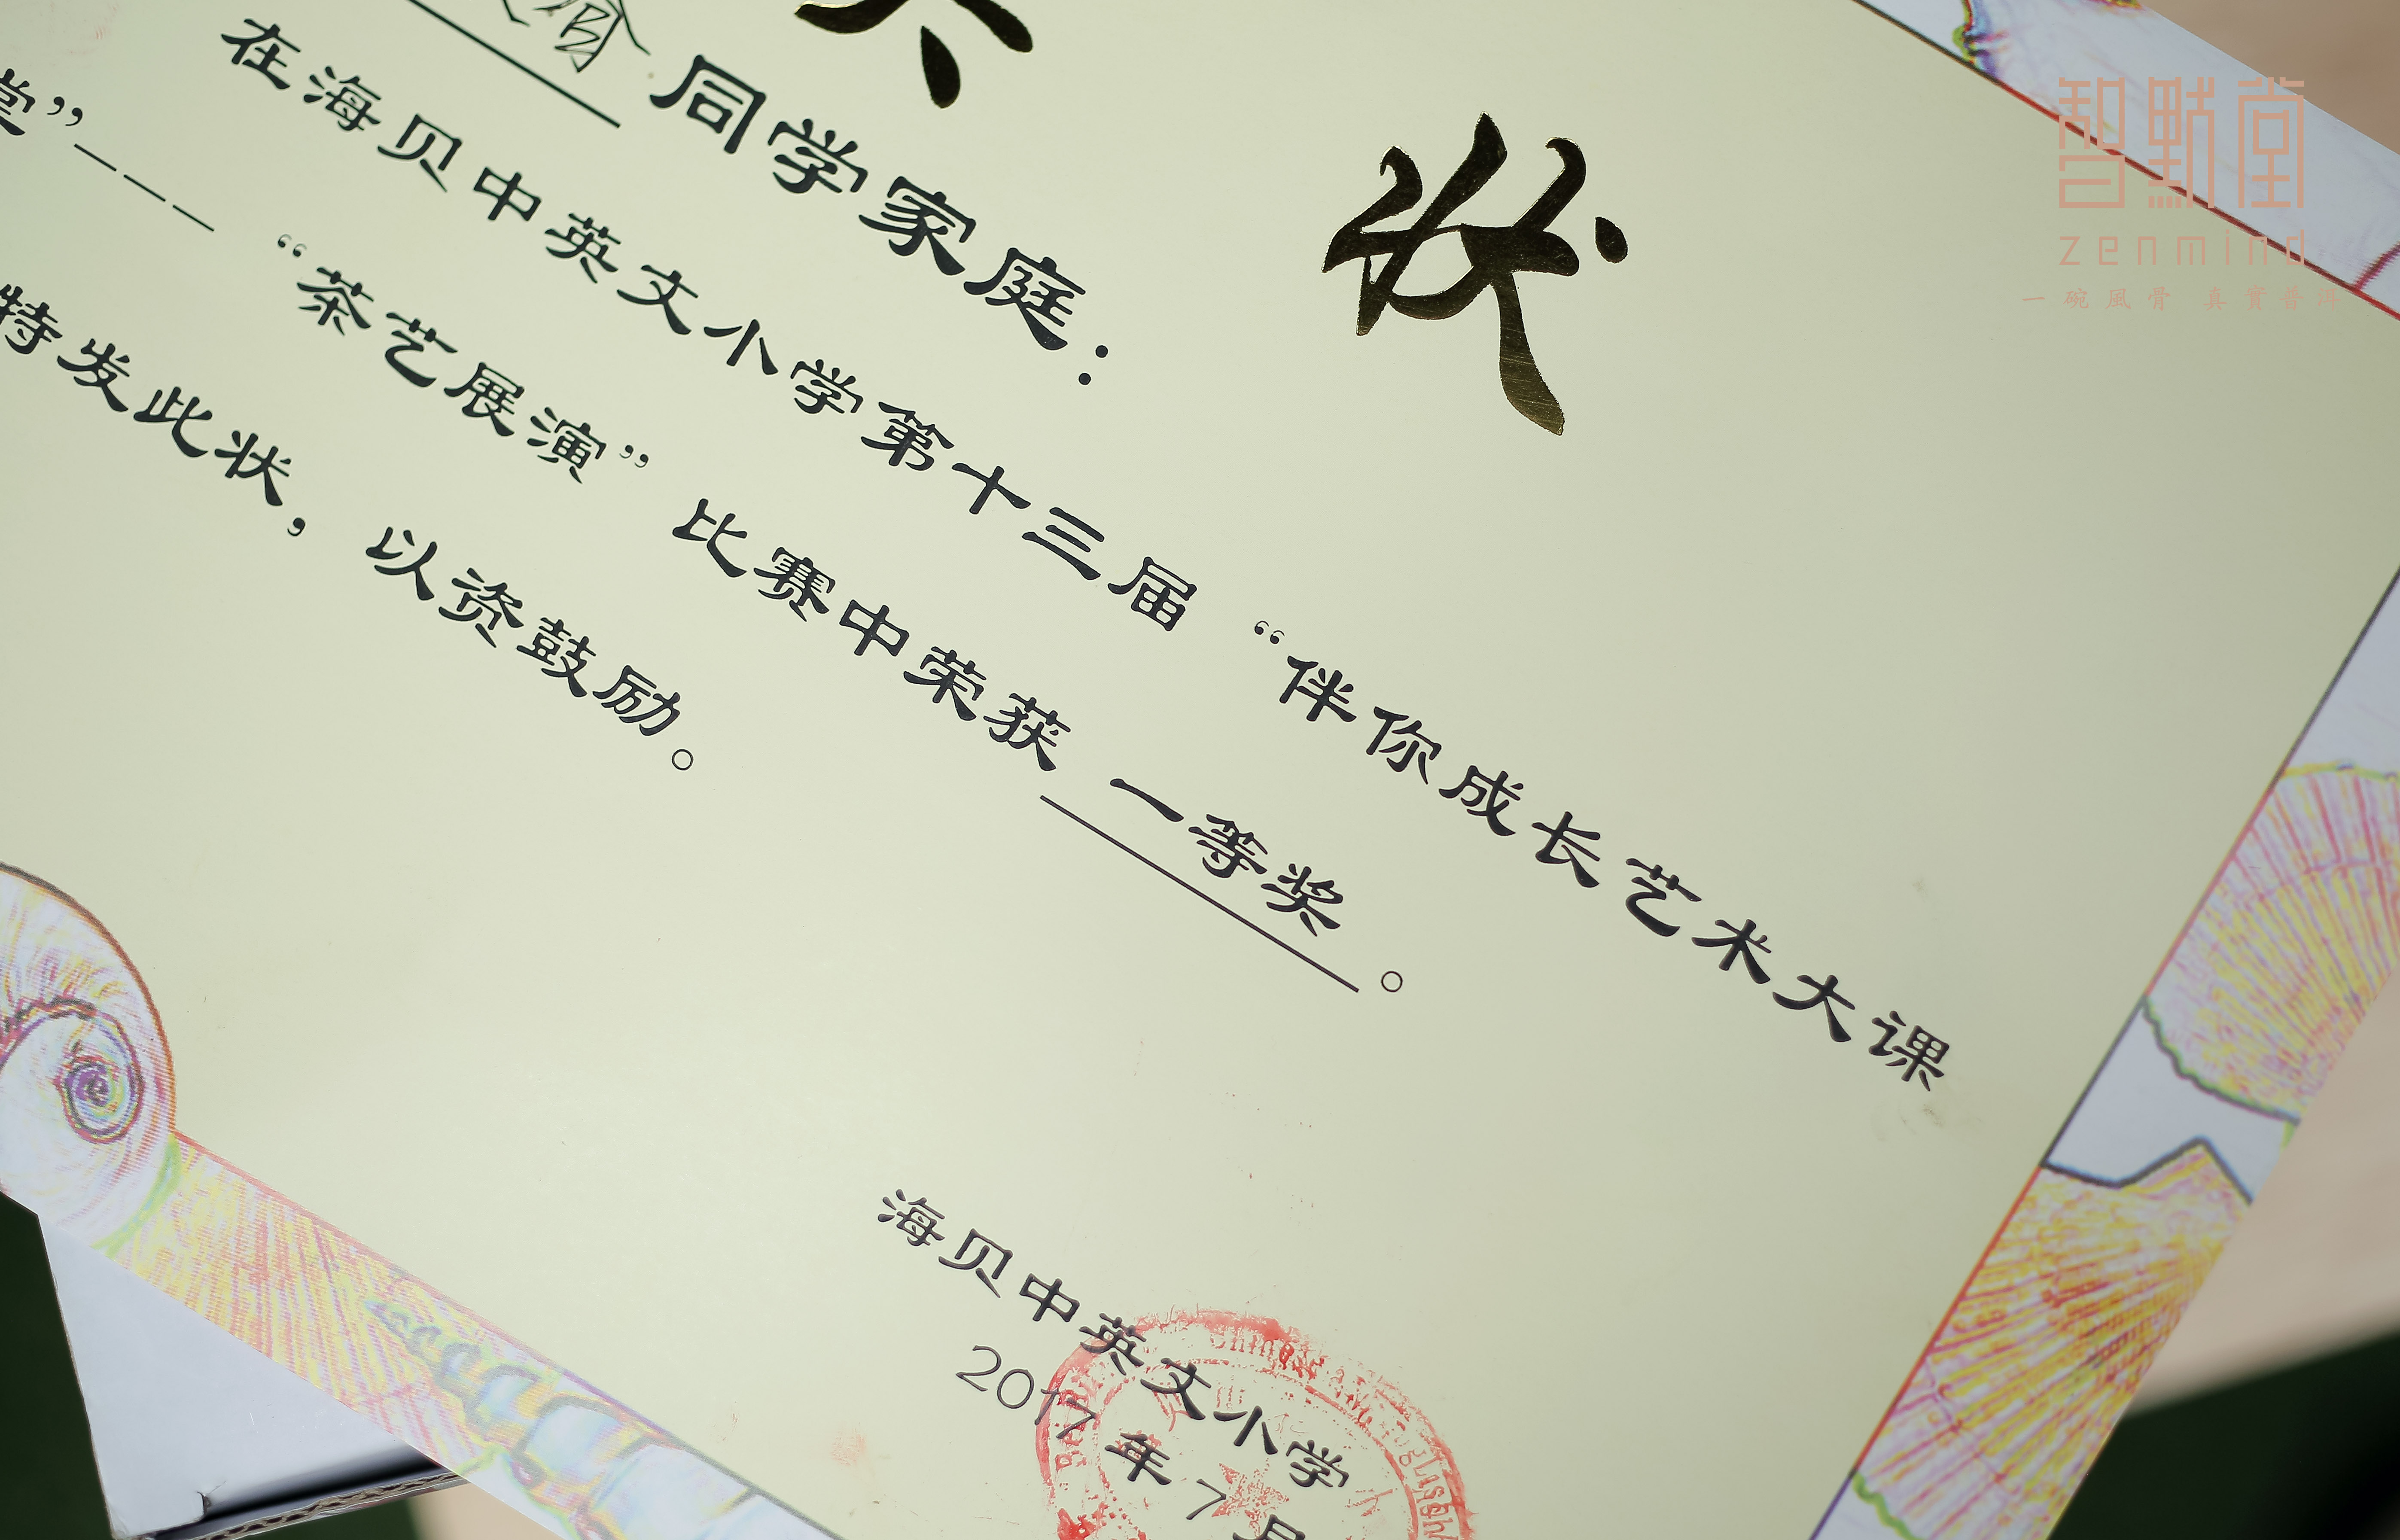 状
同学家庭：
在海贝中英文小学第十三届 “伴你成长艺术大课
堂”——— “茶艺展演” 比赛中荣获 一等奖 。
特发此状， 以资鼓励。
海贝中英文小学
2017 年 7 月
智默堂
zenmind
一碗風骨 真實普洱